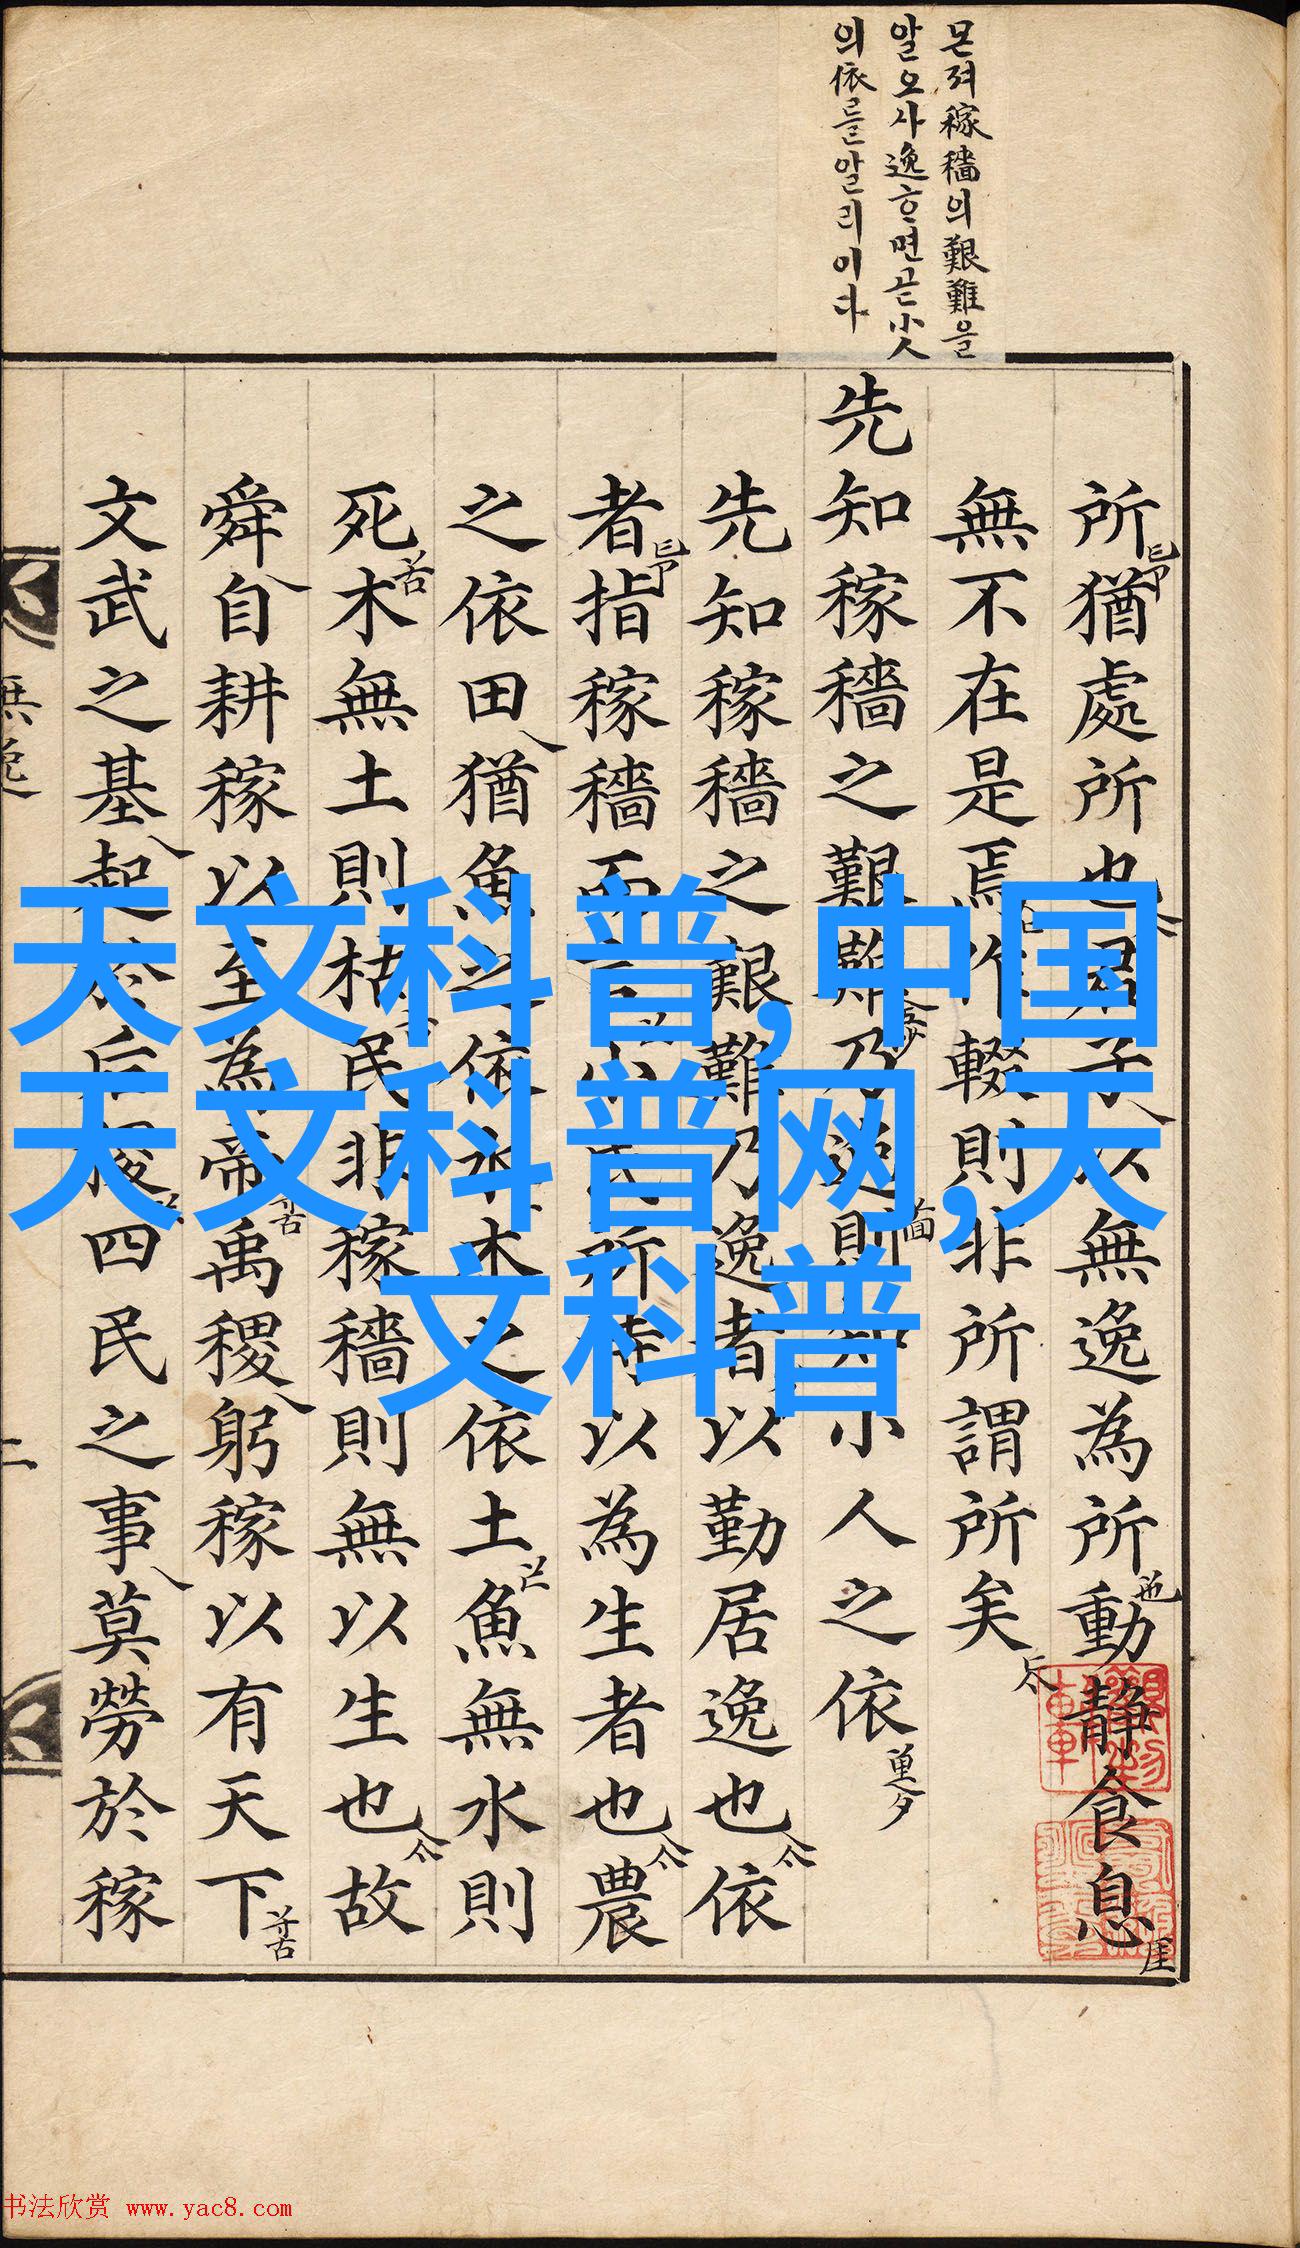 몬져稼穡의艱難을
알오사逸ᄒ면곧小人
의依를알리이다
所猶處所也君子以無逸為所動静食息
無不在是焉作輟則非所謂所矣
先知稼穡之艱難乃逸則知小人之依
先知稼穡之艱難乃逸者以勤居逸也依
者指稼穡而言小民所恃以為生者也農
之依田猶魚之依水木之依土魚無水則
死木無土則枯民非稼穡則無以生也故
舜自耕稼以至為帝禹稷躬稼以有天下
文武之基起於后稷四民之事莫勞於稼
無逸
二
天文科普,中国
天文科普网,天
文科普
书法欣赏 www.yac8.com